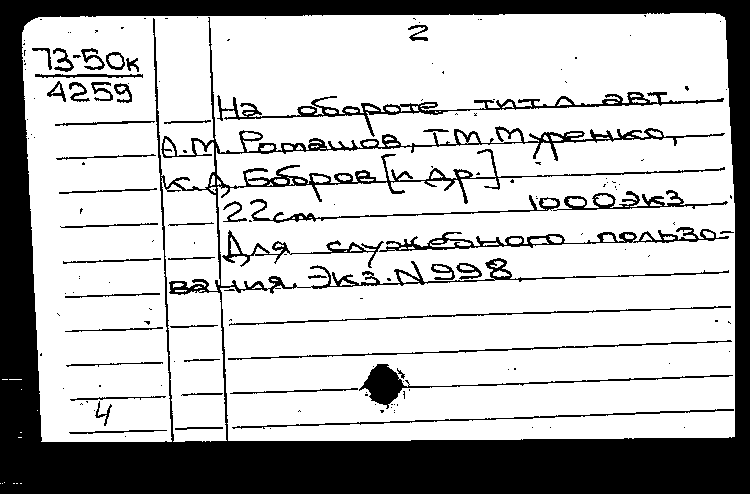 2
73-50к
4259
На обороте тит. л. авт.:
А.М. Ромашов, Т.М. Муренко,
К.Д. Бборов [и др.].
22 см. 1000 экз.
Для служебного пользо-
вания. Экз. N 998.
4